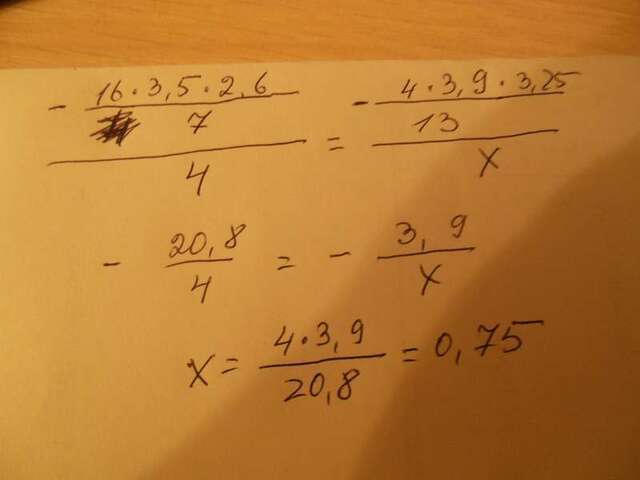 - 16·3,5·2,6 / 7 / 4 = - 4·3,9·3,25 / 13 / x
- 20,8 / 4 = - 3,9 / x
x = 4·3,9 / 20,8 = 0,75